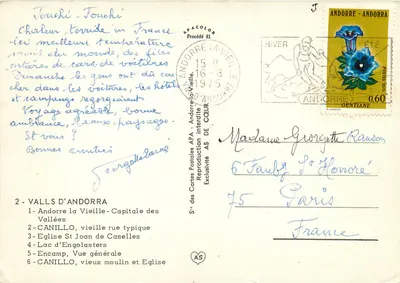 Touchi - Touchi
Chaleur torride en France
les meilleurs température
sont du monde, des files
entières de car de voitures
Dimanche les gens ont dû cou
cher dans les voitures, les hôtels
et campings regorgeaient
Voyage agréable, bonne
ambiance, beaux paysages.
Et vous ?
Bonnes amitiés
2 - VALLS D'ANDORRA
1 - Andorre la Vieille - Capitale des
Vallées
2 - CANILLO, vieille rue typique
3 - Eglise St Joan de Caselles
4 - Lac d'Engolasters
5 - Encamp, Vue générale
6 - CANILLO, vieux moulin et Eglise
APACOLOR
Précédé 82
Sté des Cartes Postales APA - Andorre-la-Vieille.
Reproduction interdite
Exclusivité AS DE CŒUR
AS
ANDORRE LA VIEILLE
15 H
16 - 8
1975
HIVER
ÉTÉ
ANDORRE
J
ANDORRE - ANDORRA
POSTES
0,60
GENTIANE
Madame Georgette Ranson
6 Faubg St Honoré
75 Paris
France